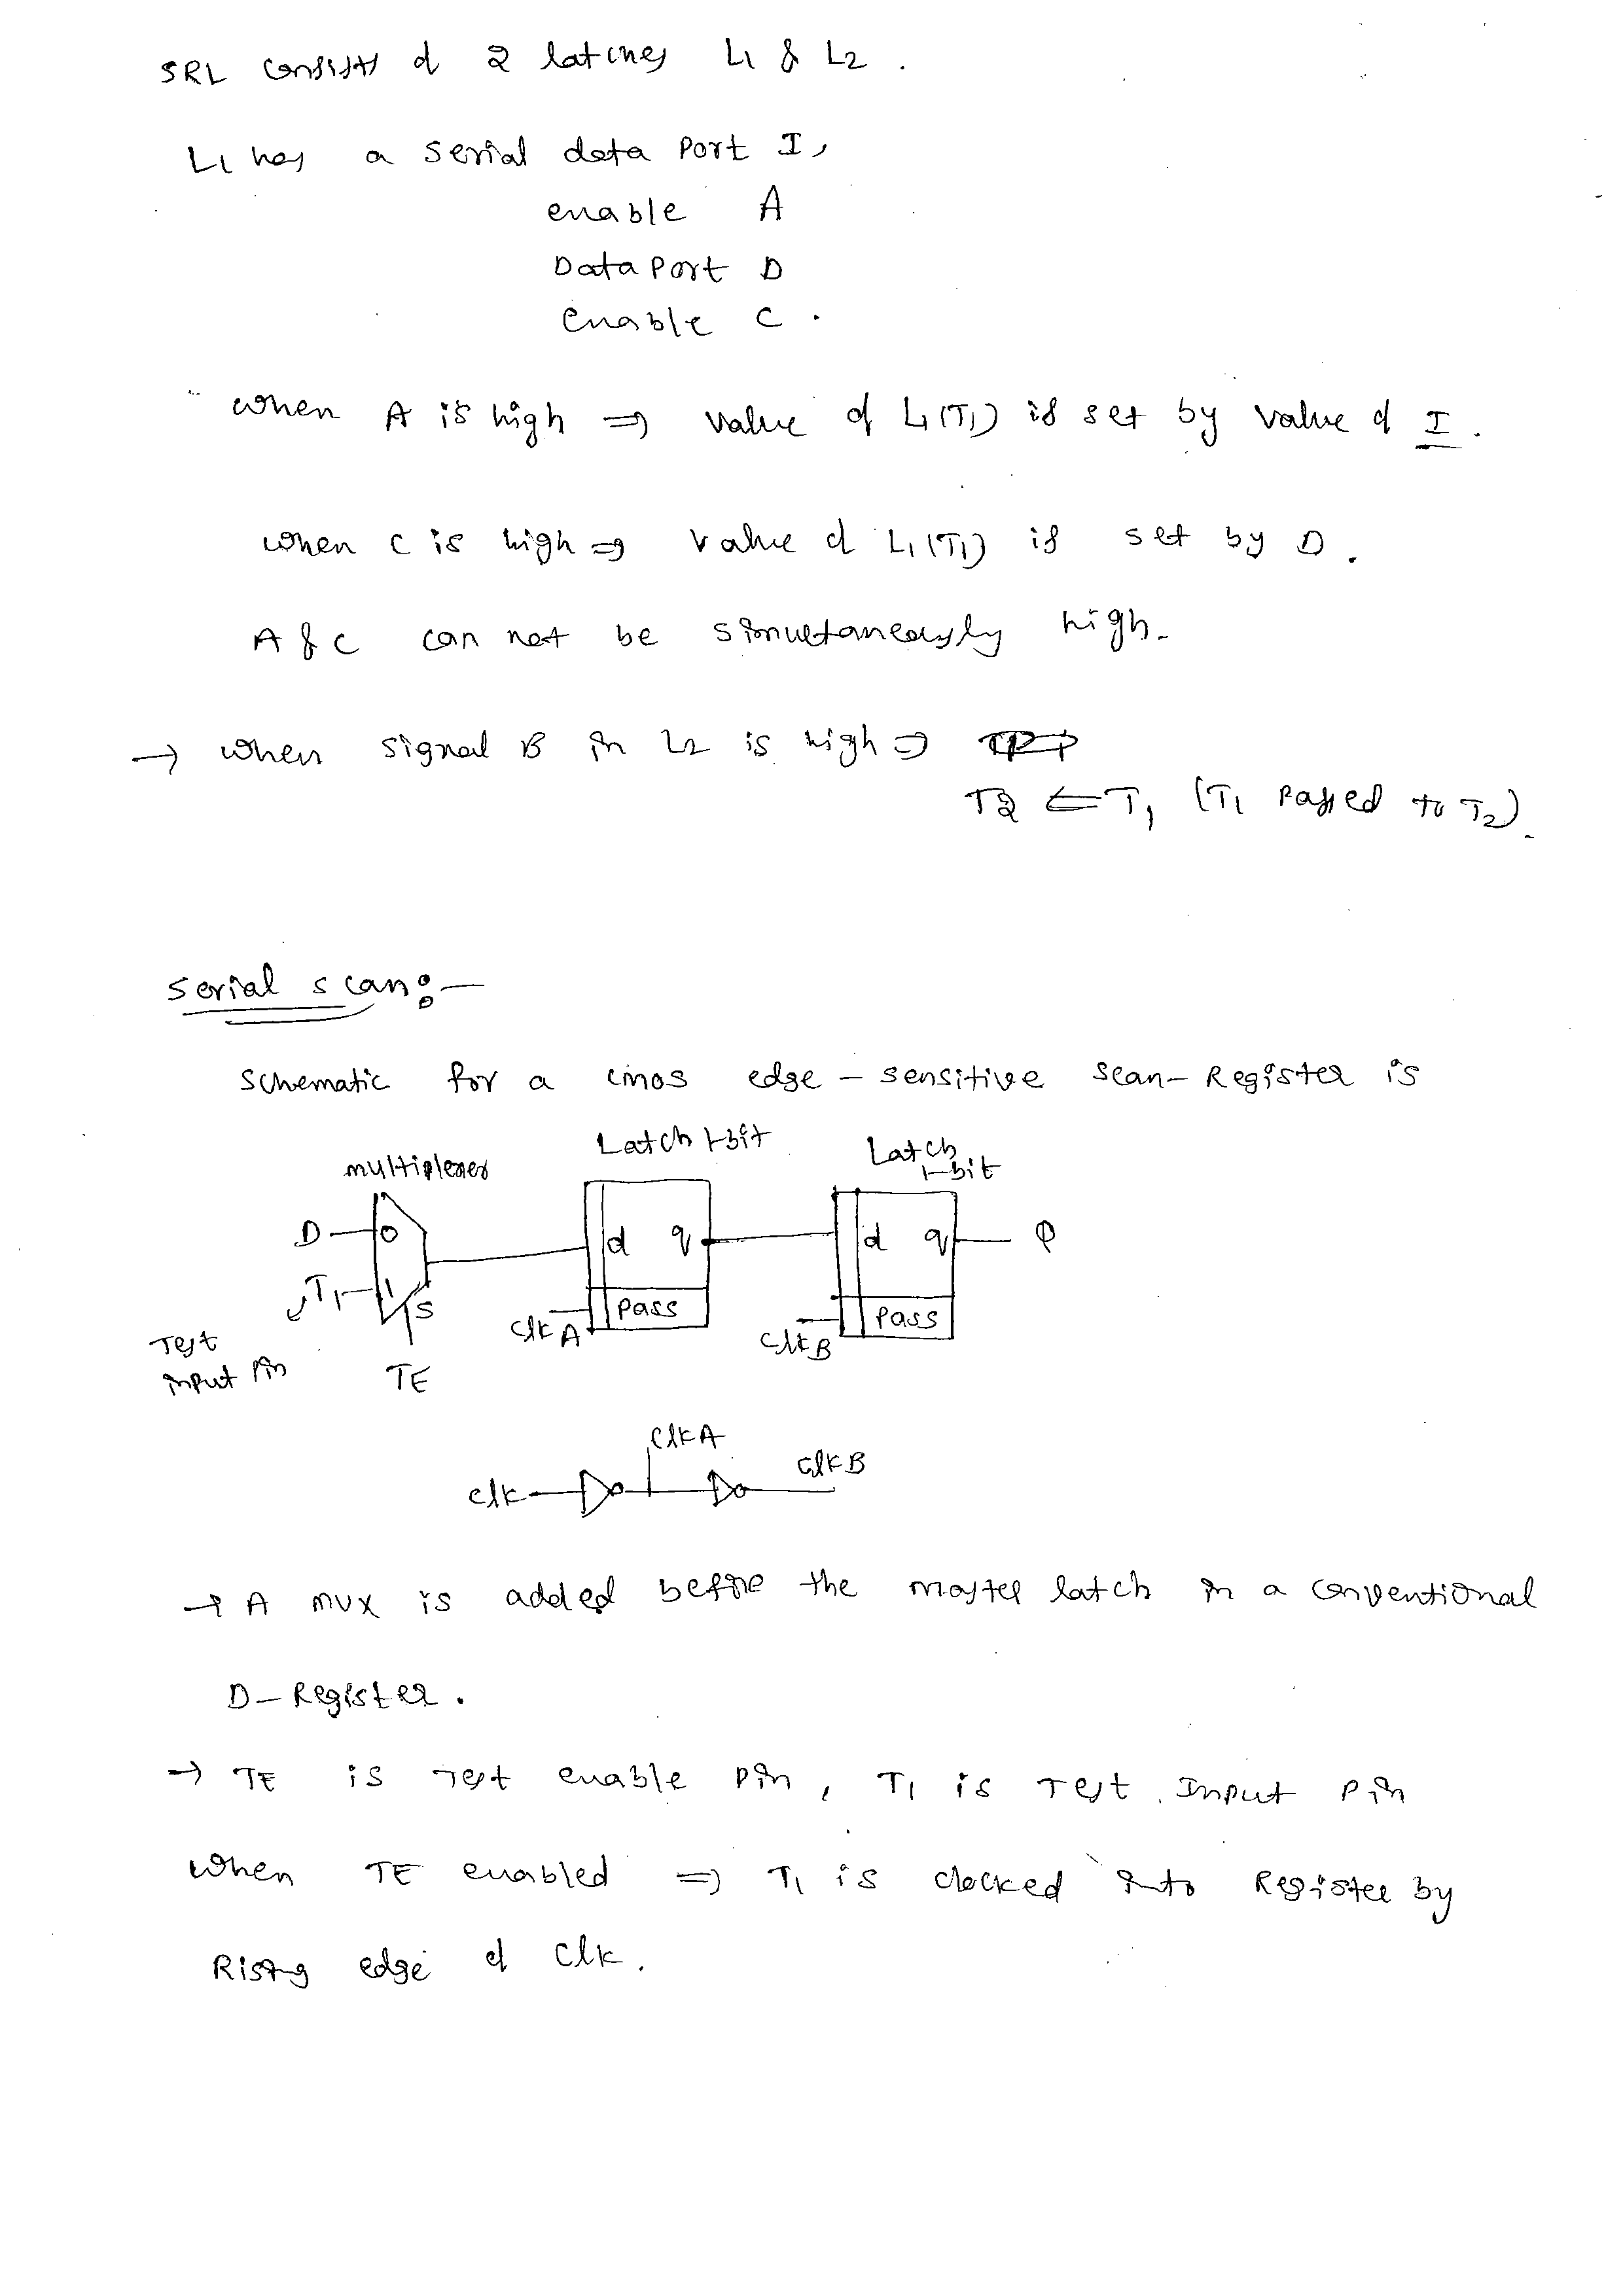 SRL consists of 2 latches L1 & L2 .
L1 has a serial data port I,
enable A
Data Port D
Enable C .
when A is high ⇒ value of L1(T1) is set by value of I .
when C is high ⇒ value of L1(T1) is set by D .
A & C can not be simultaneously high.
→ when signal B in L2 is high ⇒
T2 ⇐ T1 (T1 Passed to T2).
Serial scan:—
Schematic for a cmos edge - sensitive scan- Register is
Latch 1-bit
Latch
1-bit
multiplexer
D 0 d q d q Q
T1 1 S Pass Pass
clkA clkB
Test
input Pin TE
clkA
clkB
clk
→ A MUX is added before the master latch in a conventional
D-Register .
→ TE is Test enable pin , T1 is Test Input Pin
When TE enabled ⇒ T1 is clocked into Register by
Rising edge of Clk .